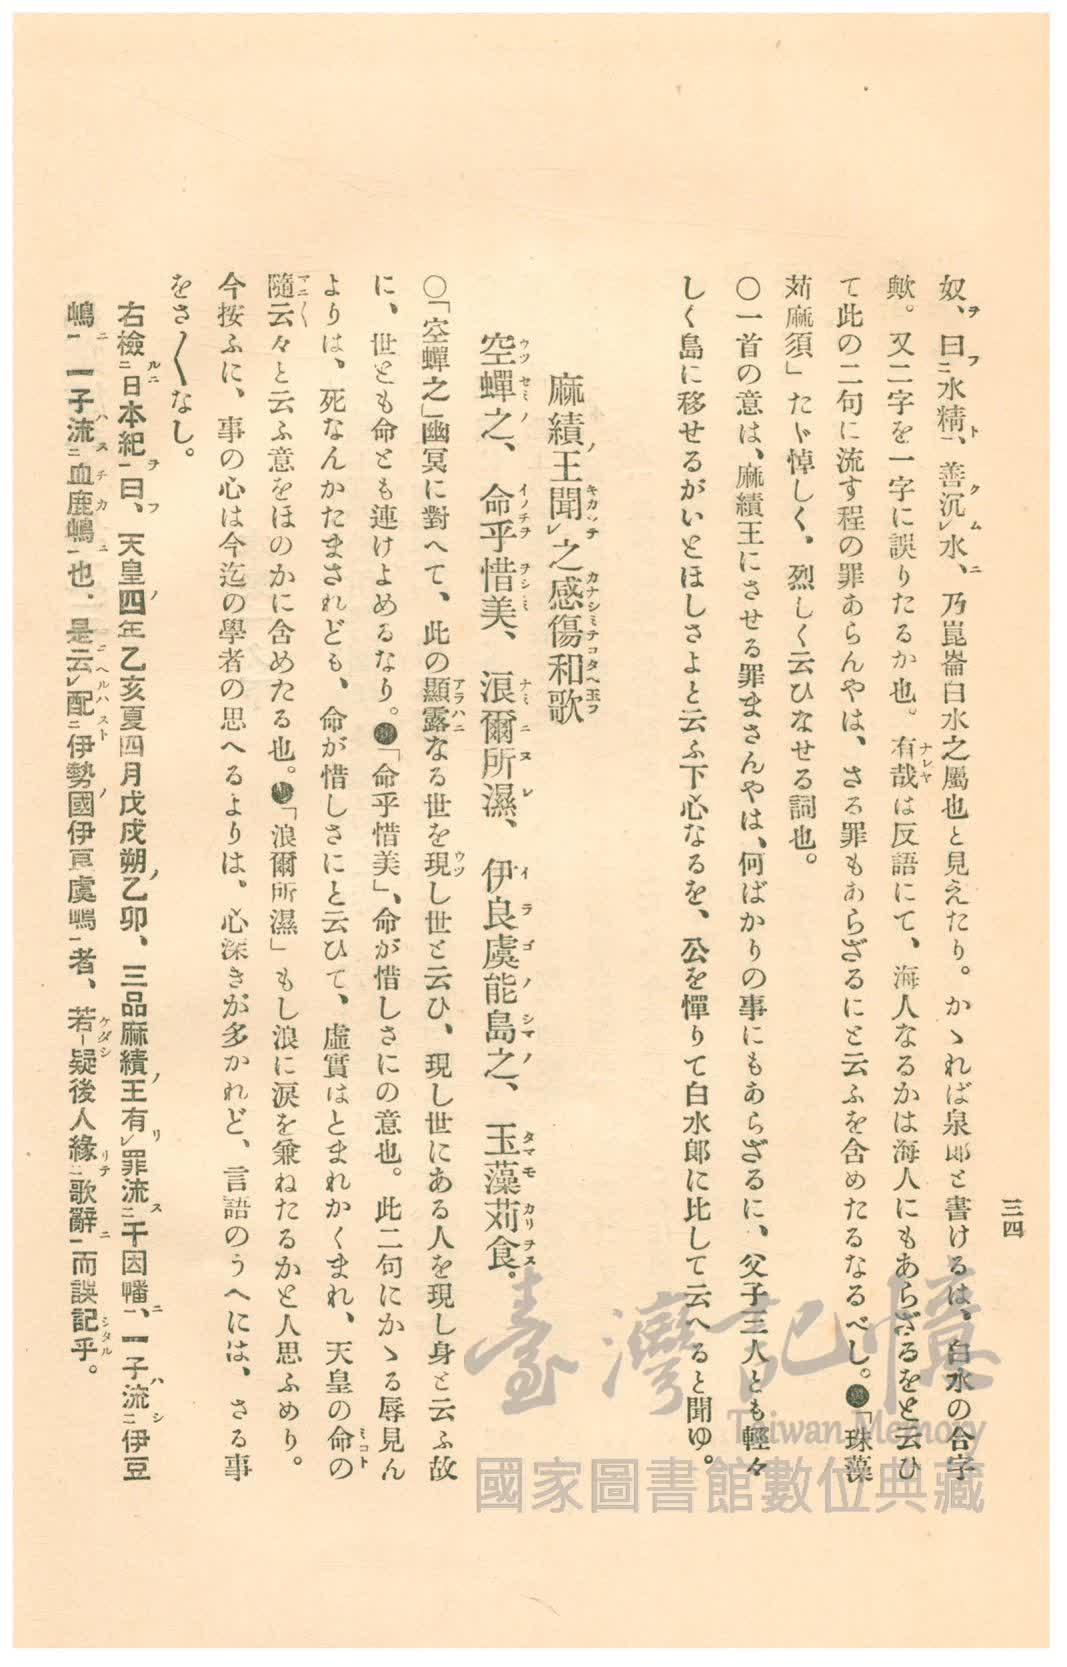 三四
奴、曰水精、善沉水、乃崑崙白水之屬也と見えたり。かゝれば泉郎と書けるは、白水の合字
歟。又二字を一字に誤りたるか也。有哉は反語にて、海人なるかは海人にもあらざるをと云ひ
て此の二句に流す程の罪あらんやは、さる罪もあらざるにと云ふを含めたるなるべし。●「珠藻
苅麻須」たゞ悼しく、烈しく云ひなせる詞也。
〇一首の意は、麻績王にさせる罪まさんやは、何ばかりの事にもあらざるに、父子三人とも輕々
しく島に移せるがいとほしさよと云ふ下心なるを、公を憚りて白水郎に比して云へると聞ゆ。
麻績王聞之感傷和歌
空蟬之、命乎惜美、浪爾所濕、伊良虞能島之、玉藻苅食。
〇「空蟬之」幽冥に對へて、此の顯露なる世を現し世と云ひ、現し世にある人を現し身と云ふ故
に、世とも命とも連けよめるなり。●「命乎惜美」、命が惜しさにの意也。此二句にかゝる辱見ん
よりは、死なんかたまされども、命が惜しさにと云ひて、虛實はとまれかくまれ、天皇の命の
隨云々と云ふ意をほのかに含めたる也。●「浪爾所濕」もし浪に淚を兼ねたるかと人思ふめり。
今按ふに、事の心は今迄の學者の思へるよりは、心深きが多かれど、言語のうへには、さる事
をさ〳〵なし。
右檢日本紀曰、天皇四年乙亥夏四月戊戌朔乙卯、三品麻績王有罪流于因幡、一子流伊豆
嶋、一子流血鹿嶋也、是云配伊勢國伊良虞嶋者、若疑後人緣歌辭而誤記乎。
臺灣記憶
Taiwan Memory
國家圖書館數位典藏